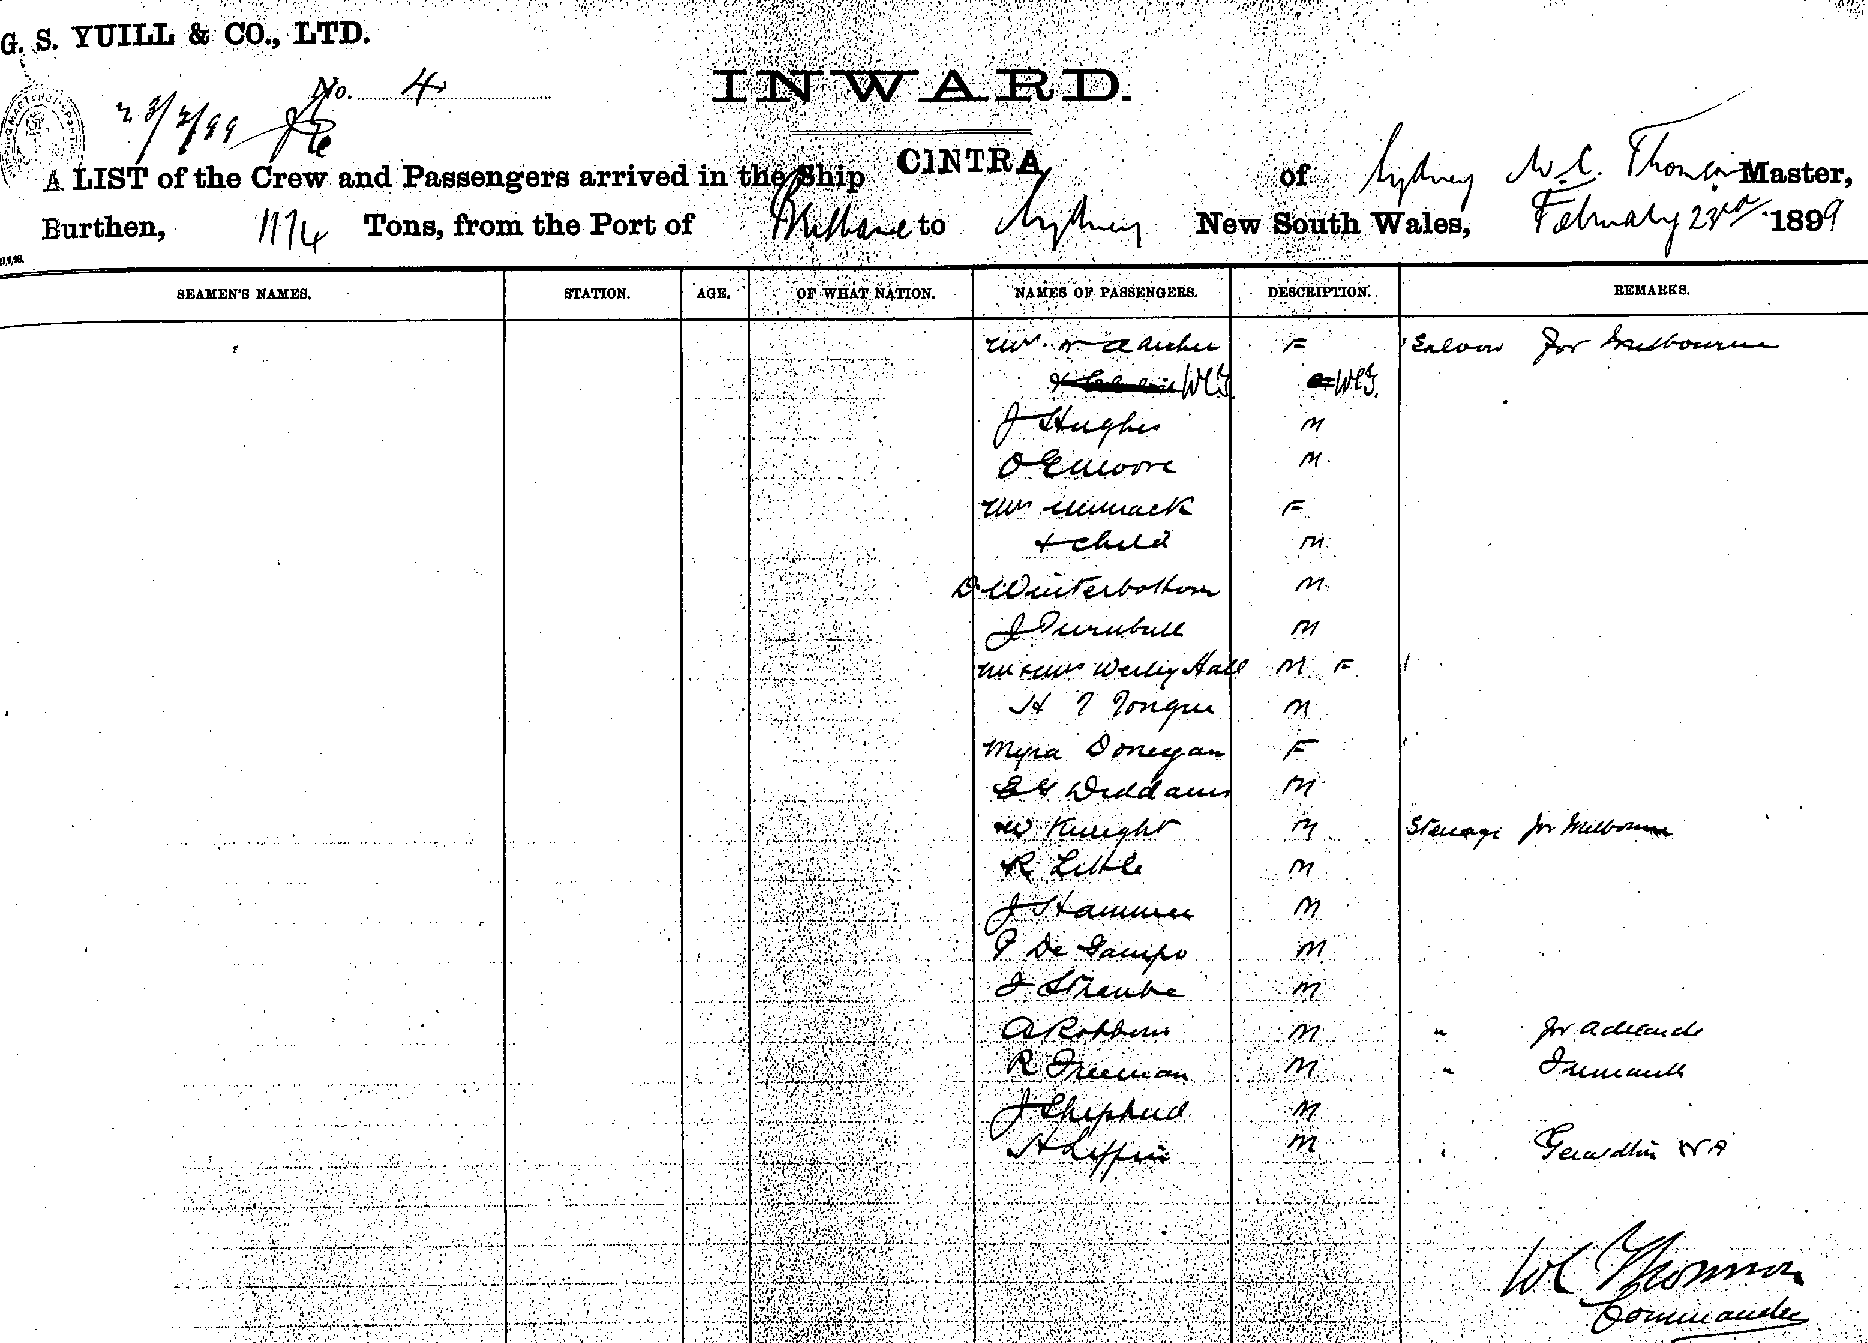 G. S. YUILL & CO., LTD.
No. 4
INWARD.
23/2/99
A LIST of the Crew and Passengers arrived in the Ship CINTRA of Sydney W. C. Thomson Master,
Burthen, 1174 Tons, from the Port of to Sydney New South Wales, February 23rd 1899
SEAMEN'S NAMES. STATION. AGE. OF WHAT NATION. NAMES OF PASSENGERS. DESCRIPTION. REMARKS.
Mrs W A Archer F Saloon for Melbourne
WCT. WCT.
J Hughes M
O E Moore M
Mrs F
+ child M
D Winterbottom M
J Turnbull M
Mr & Mrs Wesley Hall M F
H T Tongue M
Myra Donegan F
Weddams M
W Knight M Steerage for Melbourne
R Little M
J Hammer M
P De M
J Straube M
A Robbins M " for Adelaide
R Freeman M " Fremantle
J Shepherd M
H Lippin M " Geraldtin WA
WC Thomson
Commander